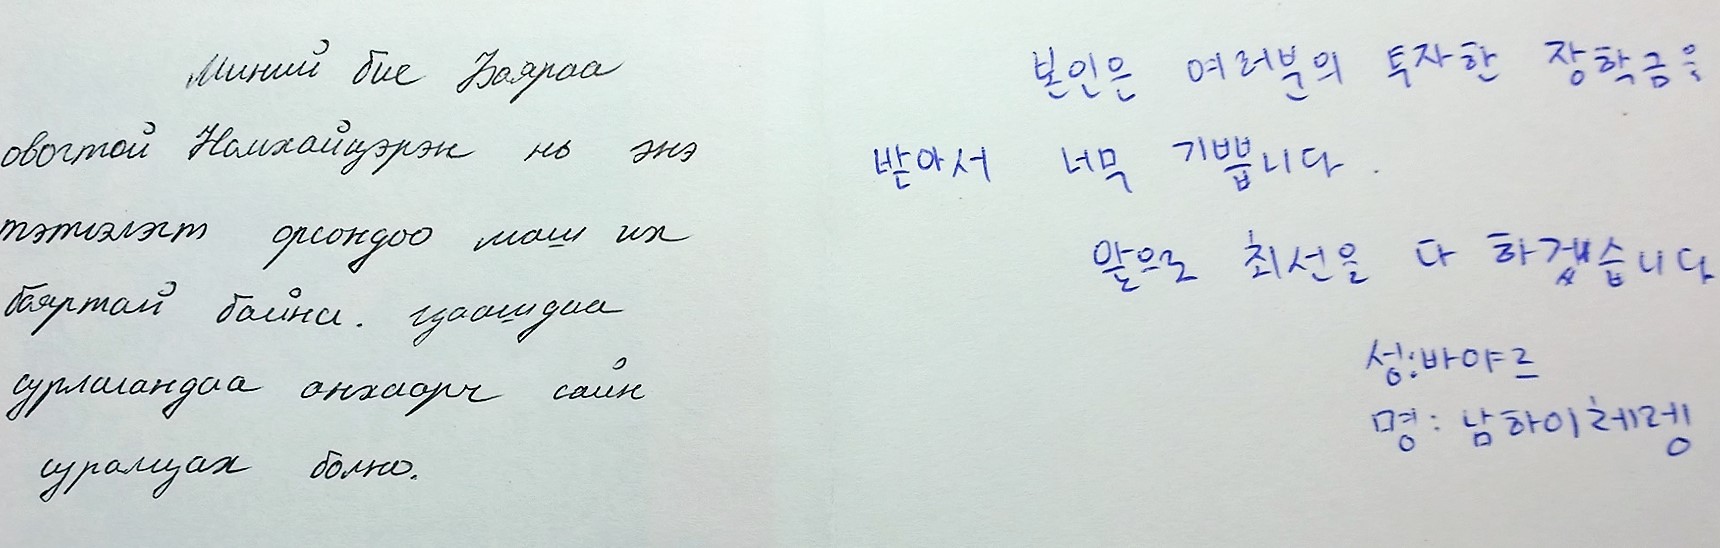 Миний бие Баяраа
овогтой Намхайцэрэн нь энэ
тэтгэлэгт орсондоо маш их
баяртай байна. Цаашдаа
сурлагандаа анхаарч сайн
суралцах болно.
본인은 여러분의 투자한 장학금을
받아서 너무 기쁩니다.
앞으로 최선을 다 하겠습니다
성: 바야르
명: 남하이체렝